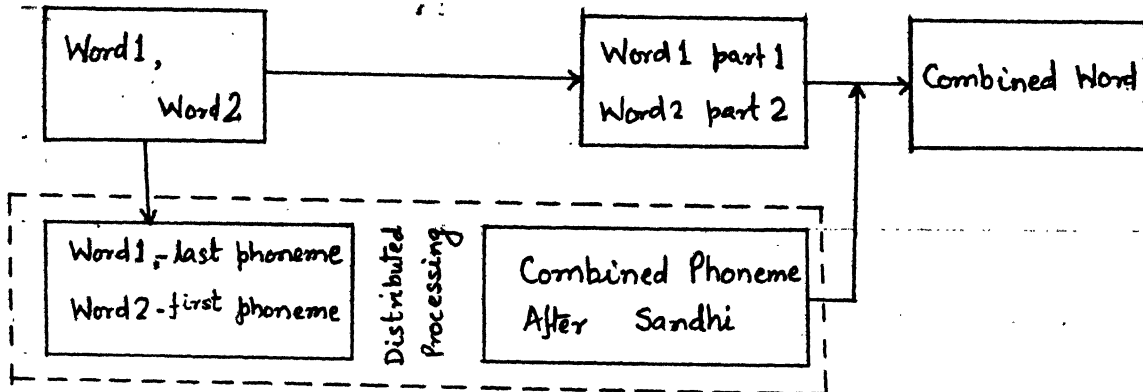 Word1,
Word2
Word1 part1
Word2 part2
Combined Word
Word1,-last phoneme
Word2-first phoneme
Distributed
Processing
Combined Phoneme
After Sandhi